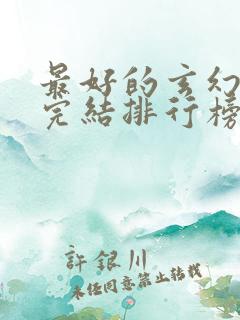 最好的玄幻
完結排行榜
許銀川
未经同意禁止转载